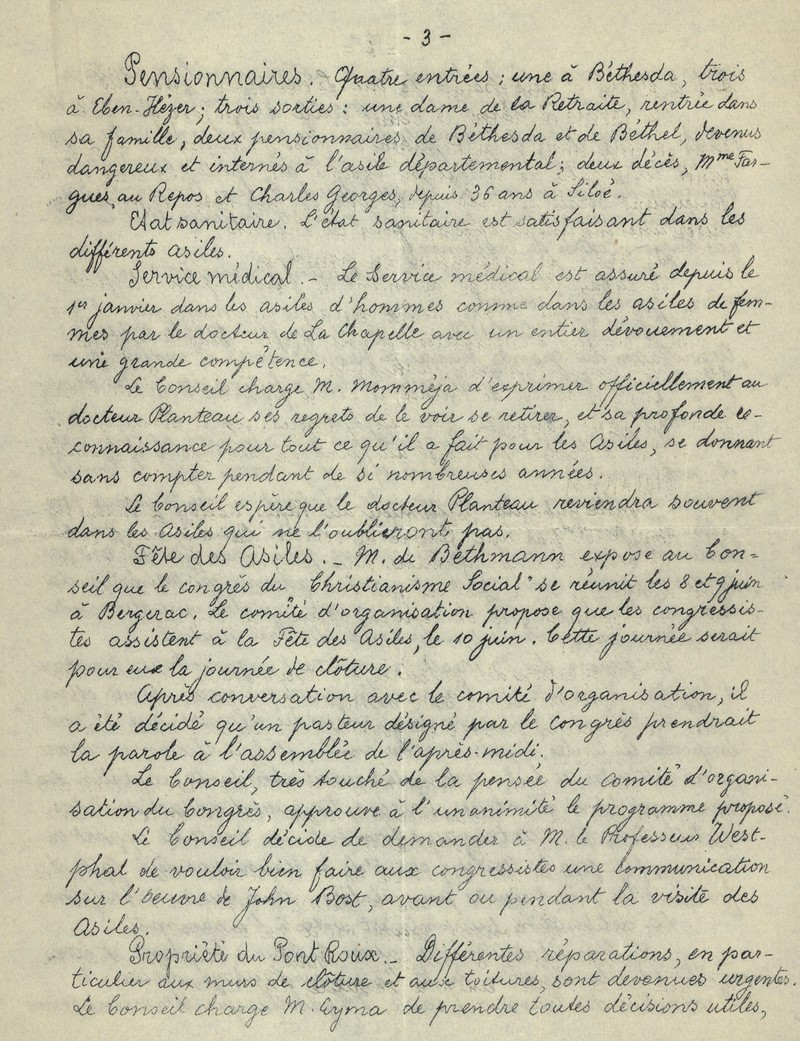 - 3 -
Pensionnaires. Quatre entrées ; une à Béthesda, trois
à Eben-Hézer ; trois sorties : une dame de la Retraite, rentrée dans
sa famille, deux pensionnaires de Béthesda et de Béthel, devenus
dangereux et internés à l'asile départemental ; deux décès, Mme Far-
gues, au Repos et Charles Georges, depuis 36 ans à Siloé.
Etat sanitaire. L'état sanitaire est satisfaisant dans les
différents asiles.
Service médical. - Le Service médical est assuré depuis le
1er janvier dans les asiles d'hommes comme dans les asiles de fem-
mes par le docteur de La Chapelle avec un entier dévouement et
une grande compétence.
Le Conseil charge M. Momméja d'exprimer officiellement au
docteur Planteau ses regrets de le voir se retirer, et sa profonde re-
connaissance pour tout ce qu'il a fait pour les Asiles, se donnant
sans compter pendant de si nombreuses années.
Le Conseil espère que le docteur Planteau reviendra souvent
dans les Asiles qui ne l'oublieront pas.
Fête des Asiles. - M. de Bethmann expose au Con-
seil que le congrès du "Christianisme Social" se réunit les 8 et 9 juin
à Bergerac. Le comité d'organisation propose que les congressis-
tes assistent à la Fête des Asiles, le 10 juin. Cette journée serait
pour eux la journée de clôture.
Après conversation avec le comité d'organisation, il
a été décidé qu'un pasteur désigné par le congrès prendrait
la parole à l'assemblée de l'après-midi.
Le Conseil, très touché de la pensée du Comité d'organi-
sation du Congrès, approuve à l'unanimité le programme proposé.
Le Conseil décide de demander à M. le Professeur West-
phal de vouloir bien faire aux congressistes une communication
sur l'oeuvre de John Bost, avant ou pendant la visite des
Asiles.
Propriété du Pont Roux. - Différentes réparations, en par-
ticulier aux murs de clôture et aux toitures, sont devenues urgentes.
Le Conseil charge M. Eyma de prendre toutes décisions utiles,